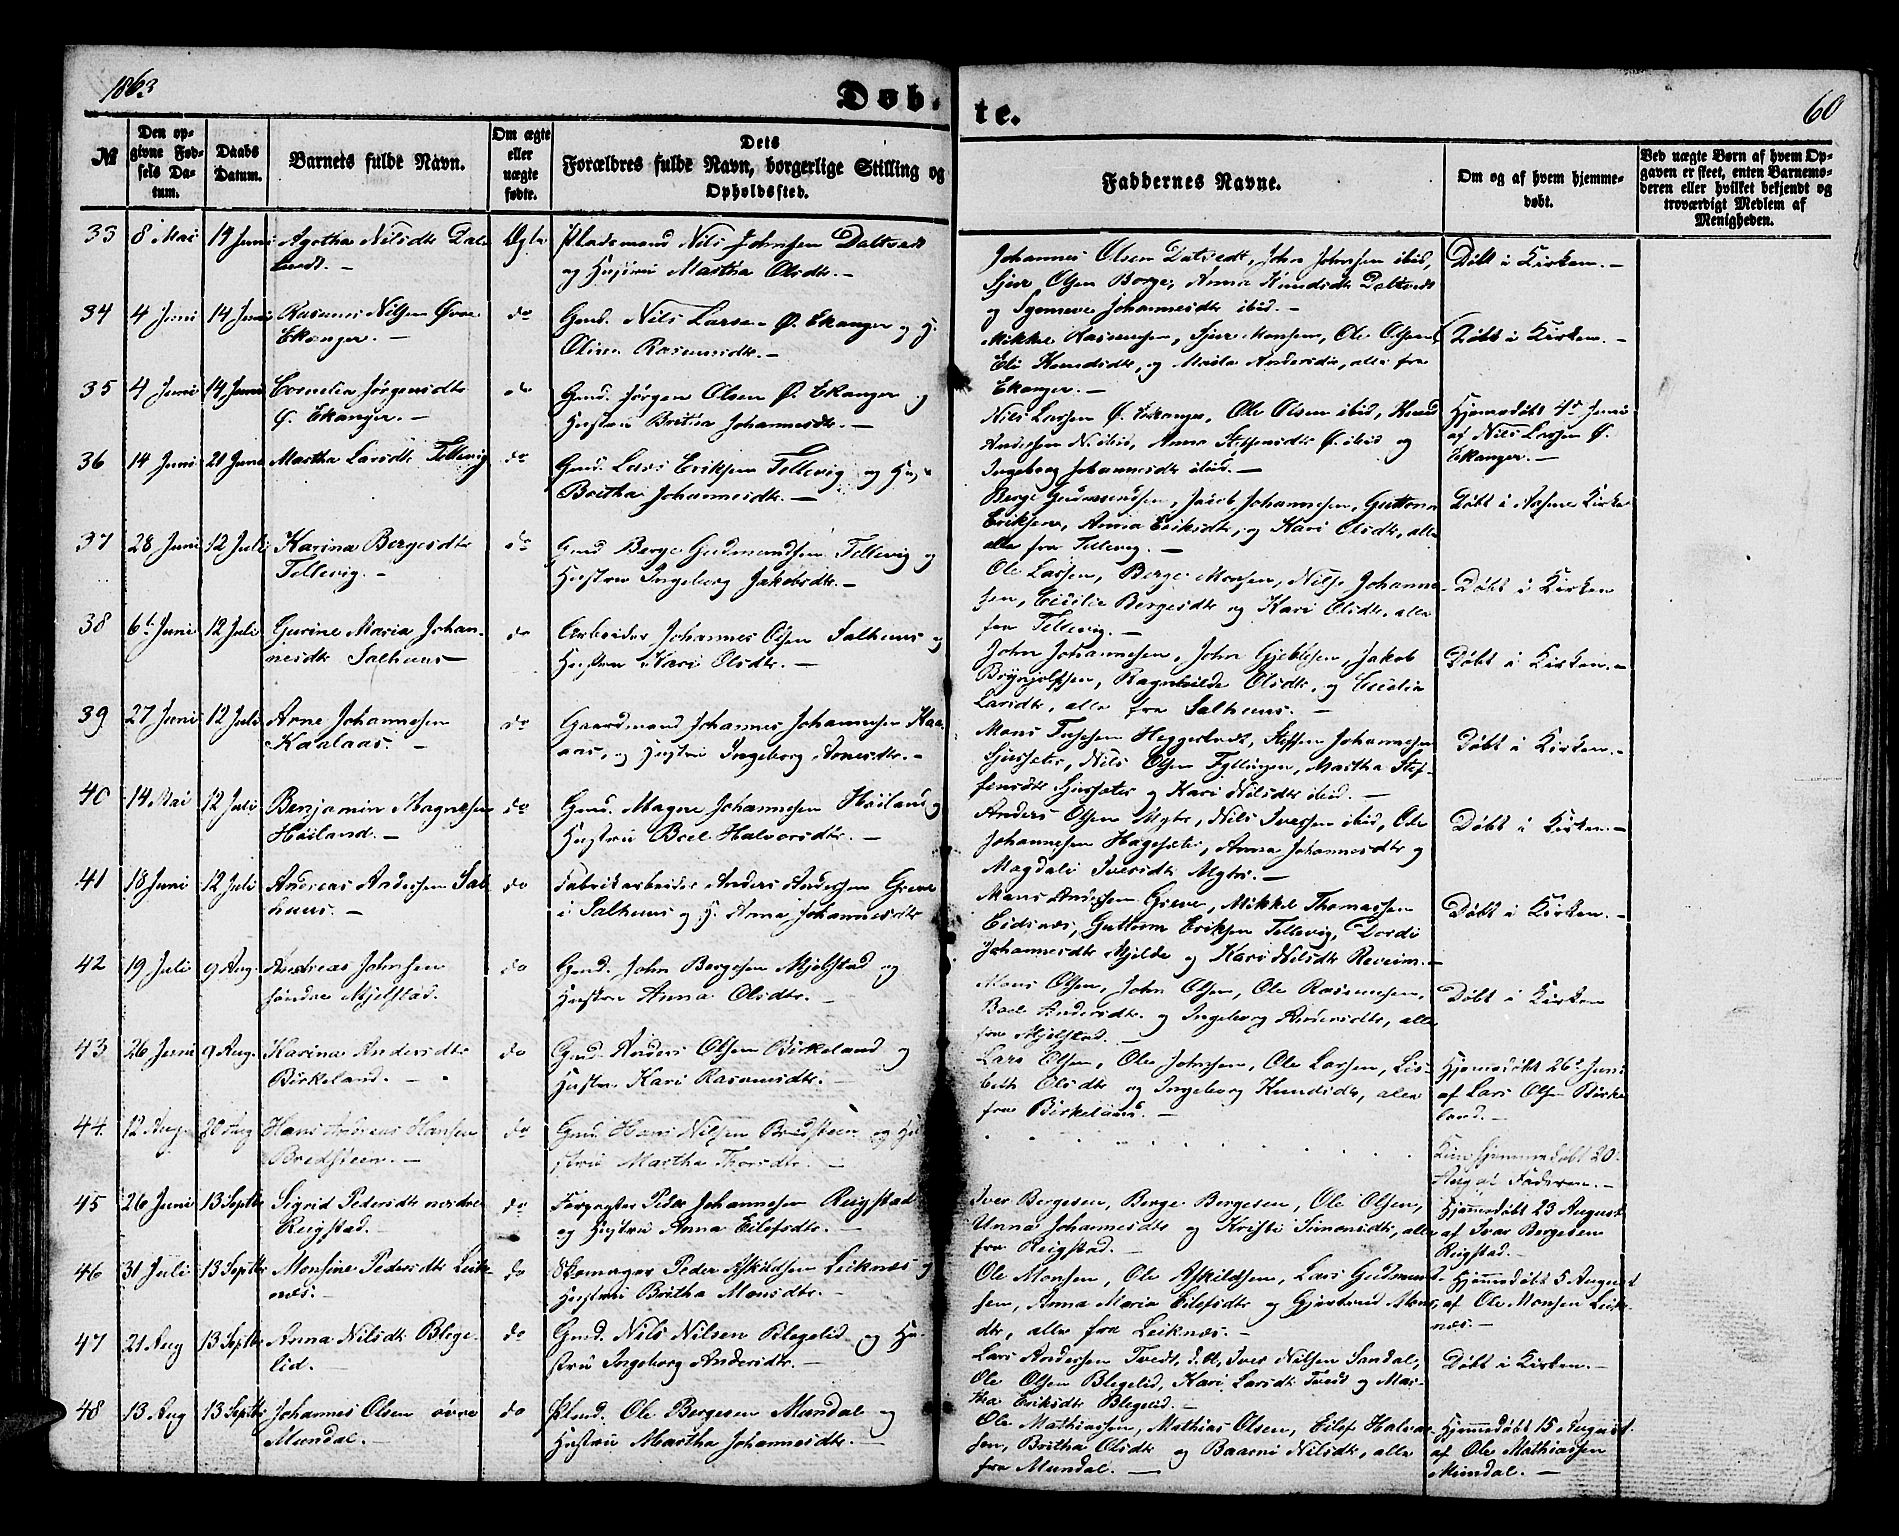 1863
Døb-
te.
60
№
Den op-
givne Fød-
sels Da-
tum.
Daabs
Datum.
Barnets fulde Navn.
Om ægte
eller
uægte
fødte.
Dets
Forældres fulde Navn, borgerlige Stilling og
Opholdssted.
Faddernes Navne.
Om og af hvem hjemme-
døbt.
Ved uægte Børn af hvem Op-
gaven er skeet, enten Barnemo-
deren eller hvilket bekjendt og
troværdigt Medlem af
Menigheden.
33 8 Mai 14 Juni Agatha Nilsdtr Dal- Ægte Pladsmand Nils Johnsen Daltvedt
og Hustru Martha Olsdtr. —
Johannes Olsen Daltvedt, John Johnsen ibid,
Sjur Olsen Berge, Anna Knudsdtr Daltvedt
og Synneve Johannesdtr ibid. —
Døbt i Kirken. —
34 4 Juni 14 Juni Rasmus Nilsen Øvre
Ekanger. —
do
Gmd. Nils Larsen Ø. Ekanger og H.
Oline Rasmusdtr. —
Mikkel Rasmussen, Sjur Monsen, Ole Olsen,
Eli Knudsdtr, og Andersdtr, alle fra
Ekanger. —
Døbt i Kirken. —
35 4 Juni 14 Juni Cornelia Jørgensdtr
Ø. Ekanger. —
do
Gmd. Jørgen Olsen Ø. Ekanger og
Hustru Britha Johannesdtr. —
Nils Larsen Ø. Ekanger, Ole Olsen ibid, Knud
Andersen N. ibid, Anna Steffensdtr Ø. ibid og
Ingeborg Johannesdtr ibid. —
Hjemmedøbt 4de Juni
af Nils Larsen Ø.
Ekanger. —
36 14 Juni 21 Juni Martha Larsdtr Tellevig
do
Gmd. Lars Eriksen Tellevig og Hu-
Britha Johannesdtr. —
Berge Gudmundsen, Jacob Johannesen, Guttorm
Eriksen, Anna Eriksdtr, og Kari Olsdtr, alle
alle fra Tellevig. —
Døbt i Kirke
37 28 Juni 12 Juli Karina Bergesdtr
Tellevig. —
do
Gmd Berge Gudmundsen Tellevig og
Hustru Ingeborg Jakobsdtr. —
Ole Larsen, Berge Monsen, Nils Johanne-
sen, Cicilie Bergesdtr og Kari Olsdtr, alle
fra Tellevig. —
Døbt i Kirken
38 6te Juni 12 Juli Gurine Maria Johan-
nesdtr Salhuus —
do
Arbeider Johannes Olsen Salhuus og
Hustru Kari Olsdtr. —
John Johannesen, John Gjeblesen, Jakob
Brynjolfsen, Ragnhilde Olsdtr, og Cicilia
Larsdtr, alle fra Salhuus. —
Døbt i Kirken. —
39 27 Juni 12 Juli Arne Johannesen
Kaalaas. —
do
Gaardmand Johannes Johannesen Kaa-
aas, og Hustru Ingeborg Arnesdtr. —
Mons Heggestad, Steffen Johannesen
Nils Olsen Fyllingen, Martha Stef-
fensdtr og Kari Nilsdtr ibid. —
Døbt i Kirken. —
40 14 Mai 12 Juli Benjamin Magnesen
Høiland. —
do
Gmd. Magne Johannesen Høiland og
Hustru Boel Halvorsdtr. —
Anders Olsen Myhr, Nils Iversen ibid, Ole
Johannesen Hagesæter, Anna Johannesdtr og
Magdali Iversdtr Myhr. —
Døbt i Kirken. —
41 18 Juni 12 Juli Andreas Andersen Sal-
huus. —
do
Fabrikarbeider Anders Andersen Greve
i Salhuus og H. Anna Johannesdtr
Mons Andersen Greve, Mikkel Thomassen
Eidsnæs, Guttorm Eriksen Tellevig, Dordi
Johannesdtr Mjelde og Kari Nilsdtr Reveim. —
Døbt i Kirken. —
42 19 Juli 9 Aug. Andreas Johnsen
søndre Mjelstad.
do
Gmd. John Bergesen Mjelstad og
Hustru Anna Olsdtr. —
Mons Olsen, John Olsen, Ole Rasmussen,
Boel Andersdtr og Ingeborg Andersdtr, alle
fra Mjelstad. —
Døbt i Kirken
43 26 Juni 9 Aug. Karina Andersdtr
Birkeland. —
do
Gmd. Anders Olsen Birkeland og
Hustru Kari Rasmusdtr. —
Lars Olsen, Ole Johnsen, Ole Larsen, Lis-
beth Olsdtr og Ingeborg Knudsdtr, alle
fra Birkeland. —
Hjemmedøbt 26de Juni
af Lars Olsen Birke-
land. —
44. 12 Aug. 20 Aug Hans Andreas Hansen
Bredsteen. —
do
Gmd. Hans Nilsen Bredsteen og Hu-
stru Martha Thorsdtr. —
Kun hjemmedøbt 20
Aug af Faderen. —
45 26 Juni 13 Septbr Sigrid Pedersdtr nordre
Reigstad. —
do
Forpagter Peder Johannesen Reigstad
og Hustru Anna Eilefsdtr. —
Iver Bergesen, Berge Bergesen, Ole Olsen,
Anna Johannesdtr og Kristi Simonsdtr, alle
fra Reigstad. —
Hjemmedøbt 23 August
af Iver Bergesen
Reigstad. —
46 31 Juli 13 Septbr Monsine Pedersdtr Leik-
næs. —
do
Skomager Peder Askildsen Leiknæs og
Hustru Britha Monsdtr. —
Ole Monsen, Ole Askildsen, Lars Gudmund-
sen, Anna Maria Eilefsdtr og Gjertrud Mons-
dtr, alle fra Leiknæs. —
Hjemmedøbt 5 August
af Ole Monsen Leik-
næs. —
47 21 Aug 13 Septbr Anna Nilsdtr Blege-
lid. —
do
Gmd. Nils Nilsen Blegelid og Hu-
stru Ingeborg Andersdtr. —
Lars Andersen Tvedt, Iver Nilsen Sandal,
Ole Olsen Blegelid, Kari Larsdtr Tvedt og Mar-
tha Eriksdtr Blegelid. —
Døbt i Kirken. —
48 13 Aug 13 Septbr Johannes Olsen øvre
Mundal. —
do
Plmd. Ole Bergesen Mundal og
Hustru Martha Johannesdtr. —
Ole Mathiassen, Mathias Olsen, Eilef Halvor-
sen, Britha Olsdtr og Nilsdtr, alle
fra Mundal. —
Hjemmedøbt 15 August
af Ole Mathiassen
Mundal. —